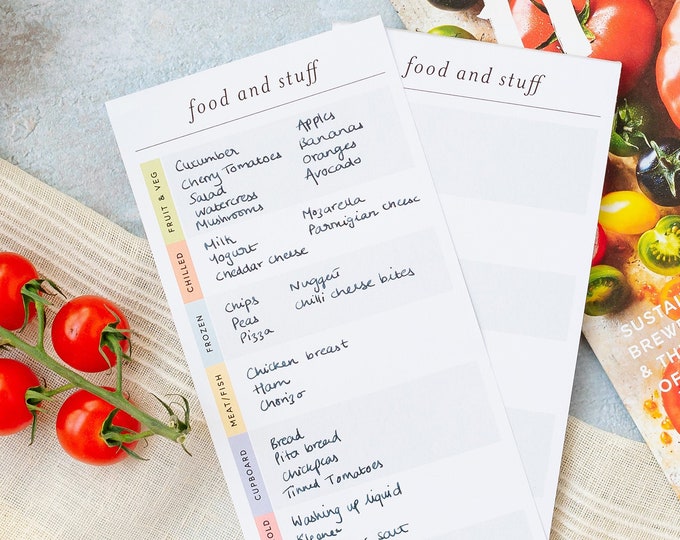 food and stuff
FRUIT & VEG
Cucumber
Cherry Tomatoes
Salad
Watercress
Mushrooms
Apples
Bananas
Oranges
Avocado
CHILLED
Milk
Yogurt
Cheddar cheese
Mozarella
Parmigian cheese
FROZEN
Chips
Peas
Pizza
Nuggets
Chilli cheese bites
MEAT/FISH
Chicken breast
Ham
Chorizo
CUPBOARD
Bread
Pita bread
Chickpeas
Tinned Tomatoes
OLD
Washing up liquid
Kleenex
salt
food and stuff
SUSTAI
BREWE
& TH
OF